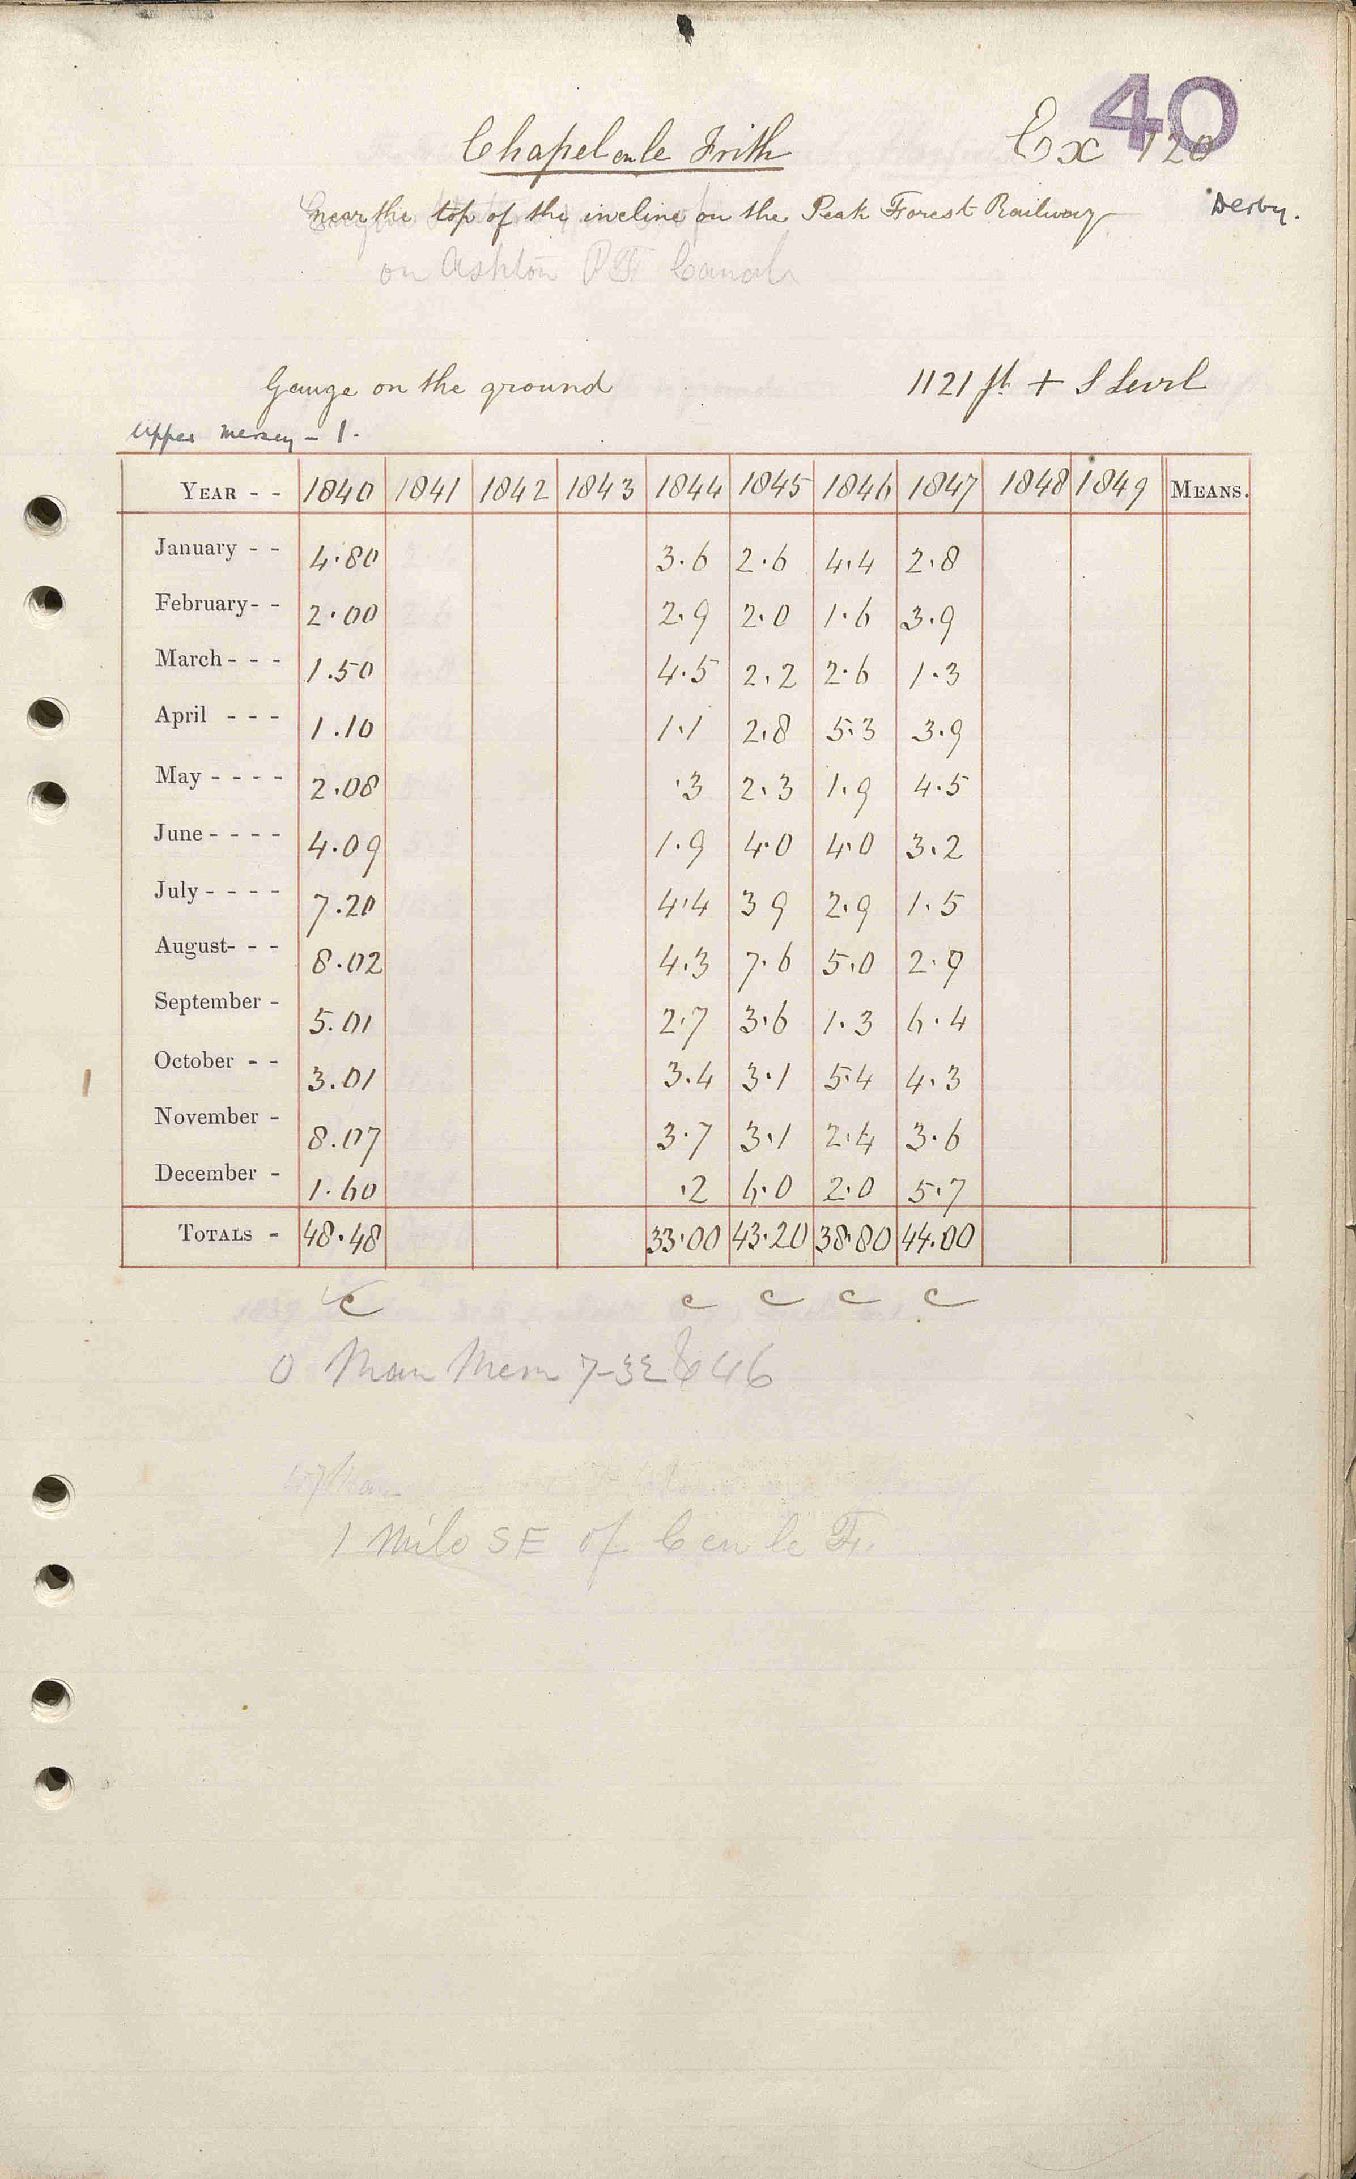 40
Chapel en le Frith Ex 120
near the top of the incline on the Peak Forest Railway Derby.
on Ashton PF Canal
Gauge on the ground 1121 ft + S Level
Upper Mersey - 1.
YEAR - - 1840 1841 1842 1843 1844 1845 1846 1847 1848 1849 MEANS.
January - - 4.80 3.6 2.6 4.4 2.8
February - - 2.00 2.9 2.0 1.6 3.9
March - - - 1.50 4.5 2.2 2.6 1.3
April - - - 1.10 1.1 2.8 5.3 3.9
May - - - - 2.08 .3 2.3 1.9 4.5
June - - - - 4.09 1.9 4.0 4.0 3.2
July - - - - 7.20 4.4 3 9 2.9 1.5
August - - - 8.02 4.3 7.6 5.0 2.9
September - 5.01 2.7 3.6 1.3 6.4
October - - 3.01 3.4 3.1 5.4 4.3
November - 8.07 3.7 3.1 2.4 3.6
December - 1.60 .2 6.0 2.0 5.7
TOTALS - 48.48 33.00 43.20 38.80 44.00
c c c c c
Man Mem
1 Mile SE of